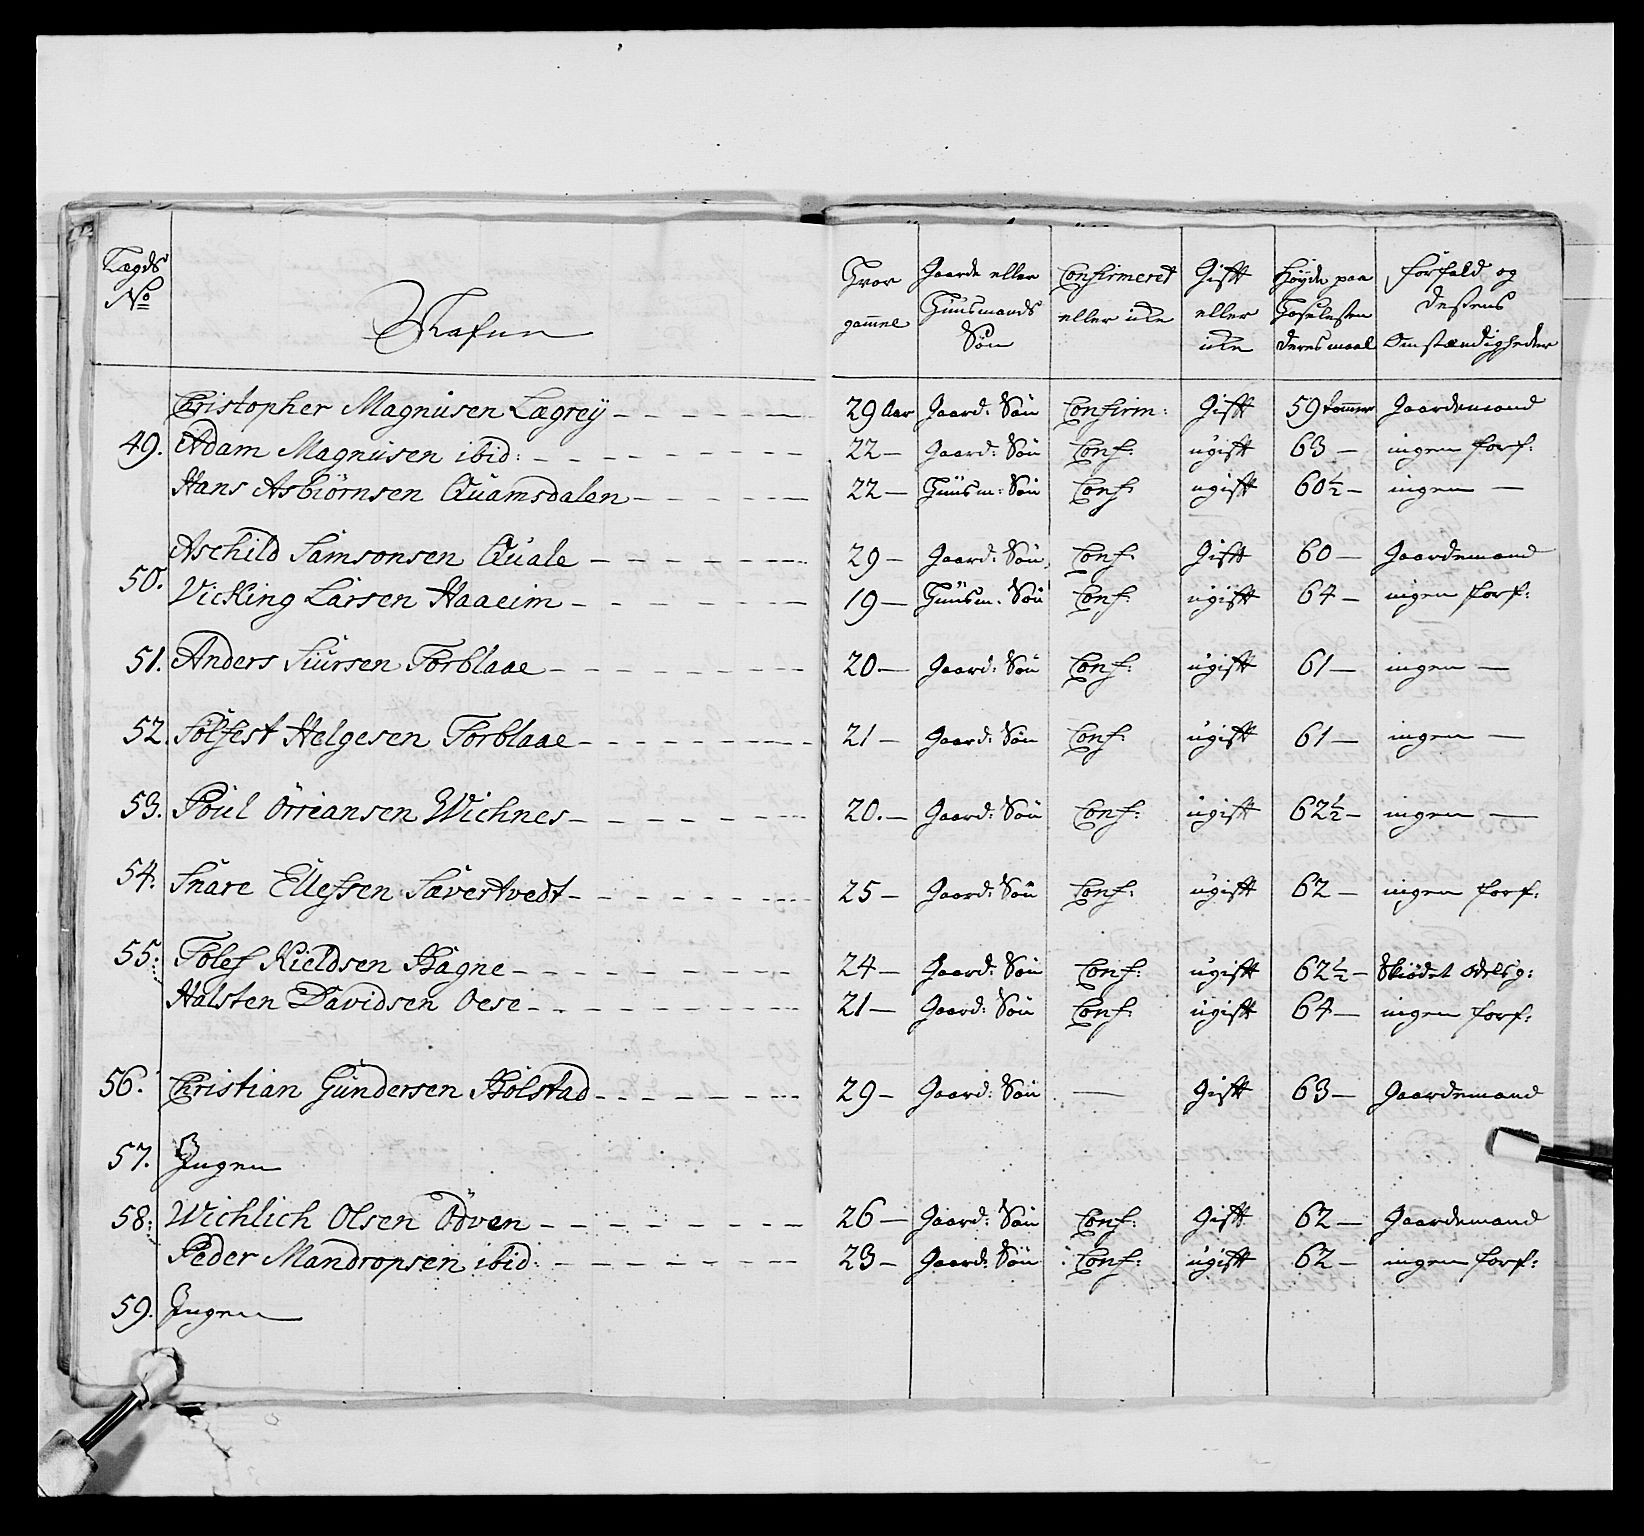 Lægds No | Nafun | Hvor gammel | Gaards eller Huusmands Søn | Confirmeret eller icke | Gift eller icke | Høyde paa Hoselesten deres maal | Forfald og dessens Omstændigheder
Christopher Magnusen Lægrey | 29 Aar | Gaard: Søn | Confirm: | Gift | 59 tommer | Gaardemand
49. Adam Magnusen ibid: | 22 — | Gaard: Søn | Conf: | ugift | 63 — | ingen forf:
Hans Asbiørnsen Quamsdalen | 22 — | Huusm: Søn | Conf: | ugift | 60½ — | ingen —
50. Aschild Samsonsen Quale | 29 — | Gaard: Søn | Conf: | Gift | 60 — | Gaardemand
Vicking Larsen Haaeim | 19 — | Huusm: Søn | Conf: | ugift | 64 — | ingen forf:
51. Anders Siursen Torblaae | 20 — | Gaard: Søn | Conf: | ugift | 61 — | ingen —
52. Sølfest Helgesen Torblaae | 21 — | Gaard: Søn | Conf: | ugift | 61 — | ingen —
53. Poul Ørreansen Wichnes | 20. — | Gaard: Søn | Conf: | ugift | 62½ — | ingen —
54. Snare Ellefsen Sævertvedt | 25 — | Gaard: Søn | Conf: | ugift | 62 — | ingen forf:
55: Tolef Kieldsen Hagne | 24 — | Gaard: Søn | Conf: | ugift | 62½ — | Skiødet odelsg:
Halsten Davidsen Oese | 21 — | Gaard: Søn | Conf: | ugift | 64 — | ingen forf:
56. Christian Gundersen Bolstad | 29 — | Gaard: Søn | — | Gift | 63 — | Gaardemand
57. Ingen
58: Wichlich Olsen Ødven | 26 — | Gaard: Søn | Conf: | Gift | 62 — | Gaardemand
Peder Mandropsen ibid: | 23 — | Gaard: Søn | Conf: | ugift | 62 — | ingen forf:
59. Ingen